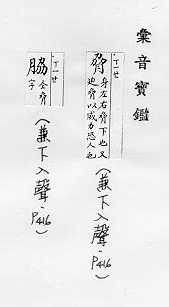 彙音寶鑑
脅
ㄒㄧㄝ
身左右脅下也又
迫脅以威力恐人也
（兼下入聲，P416）
脇
ㄒㄧㄝ
仝脅
字
（兼下入聲，P416）